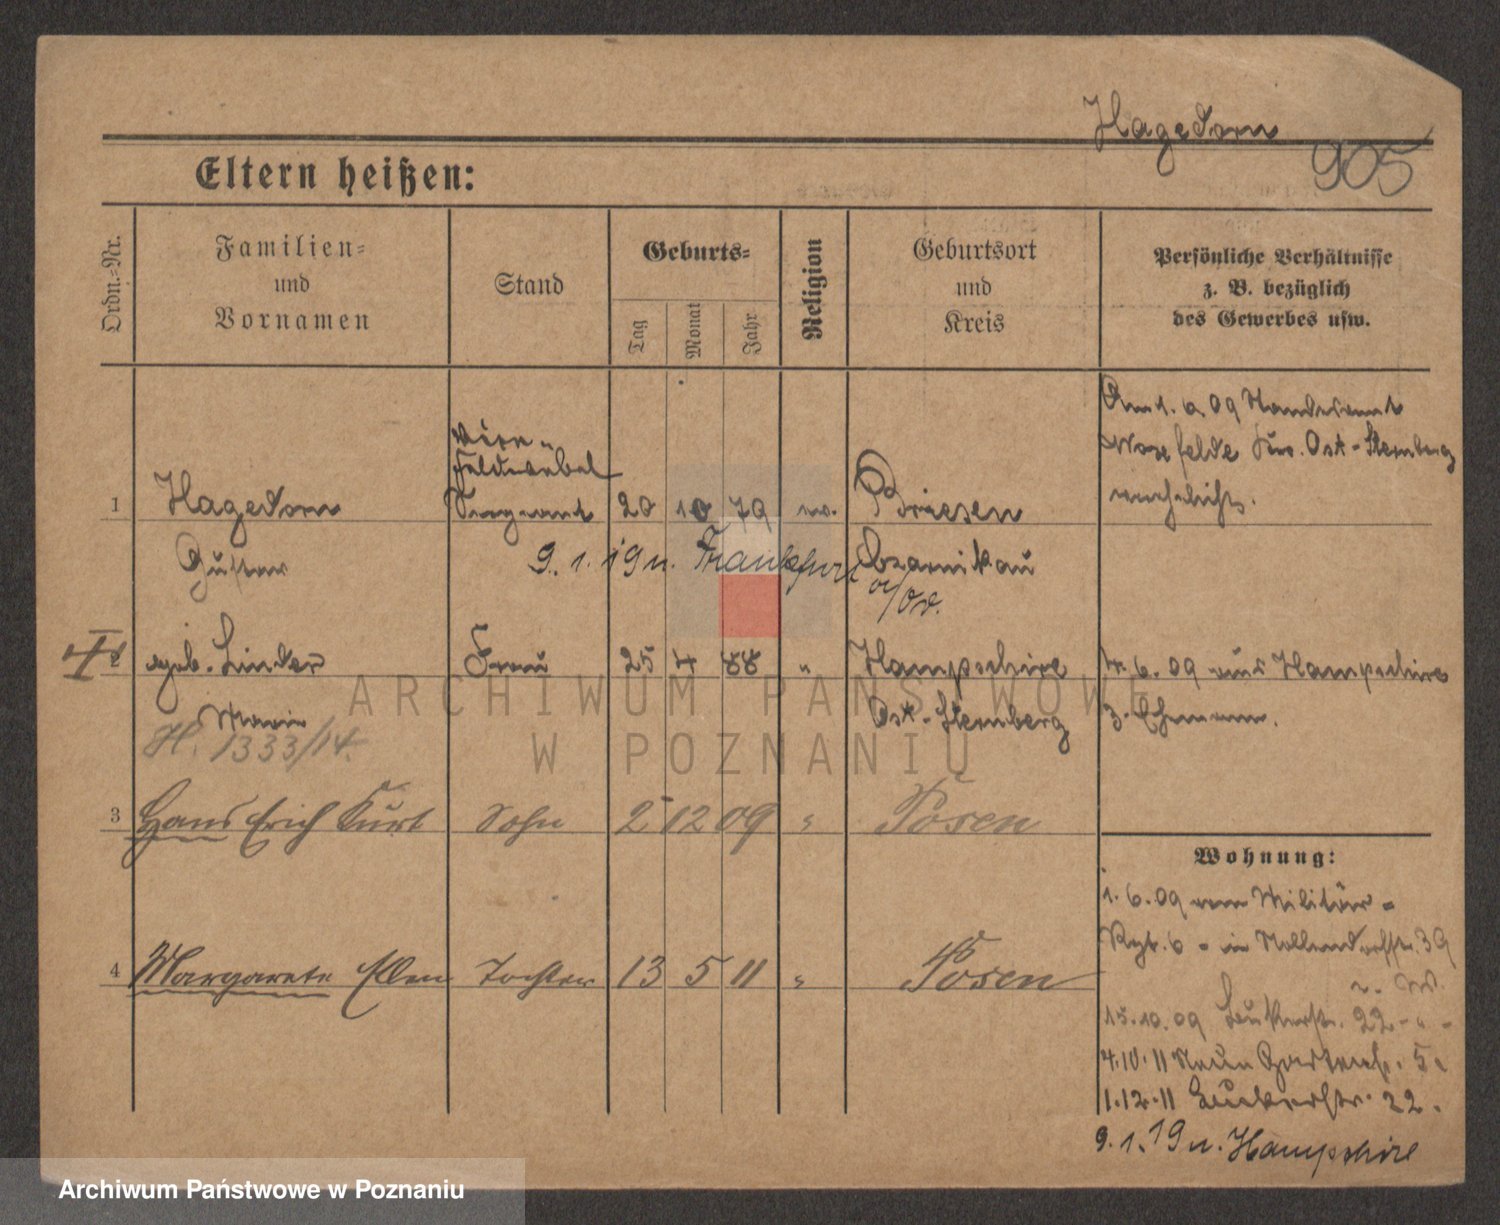 Hagedorn
905
Eltern heißen:
Ordn.=Nr.
Familien=
und
Vornamen
Stand
Geburts=
Tag
Monat
Jahr
Religion
Geburtsort
und
Kreis
Persönliche Verhältnisse
z. B. bezüglich
des Gewerbes usw.
Am 1. 6. 09 Standesamt
Ost-Sternberg
verehelicht.
Feldwebel
1 Hagedorn Sergeant 20 10 79 ev. Briesen
Gustav 9. 1. 19 n. Frankfurt Czarnikau
a/Od.
2 geb. Linder Frau 25 4 88 " Hampshire
6. 09 aus Hampshire
Marie Ost-Sternberg z. Ehemann.
H. 1333/14.
3 Hans Erich Kurt Sohn 2 12 09 " Posen
Wohnung:
1. 6. 09 vom Militär=
Rgt. 6 - in Nollendorfstr. 39
4 Margarete Ellen Tochter 13 5 11 " Posen
15.10.09 22 - " -
4.10.11 Neue Gartenstr. 5.
1.12.11 22.
9. 1. 19 n. Hampshire
ARCHIWUM PAŃSTWOWE
W POZNANIU
Archiwum Państwowe w Poznaniu